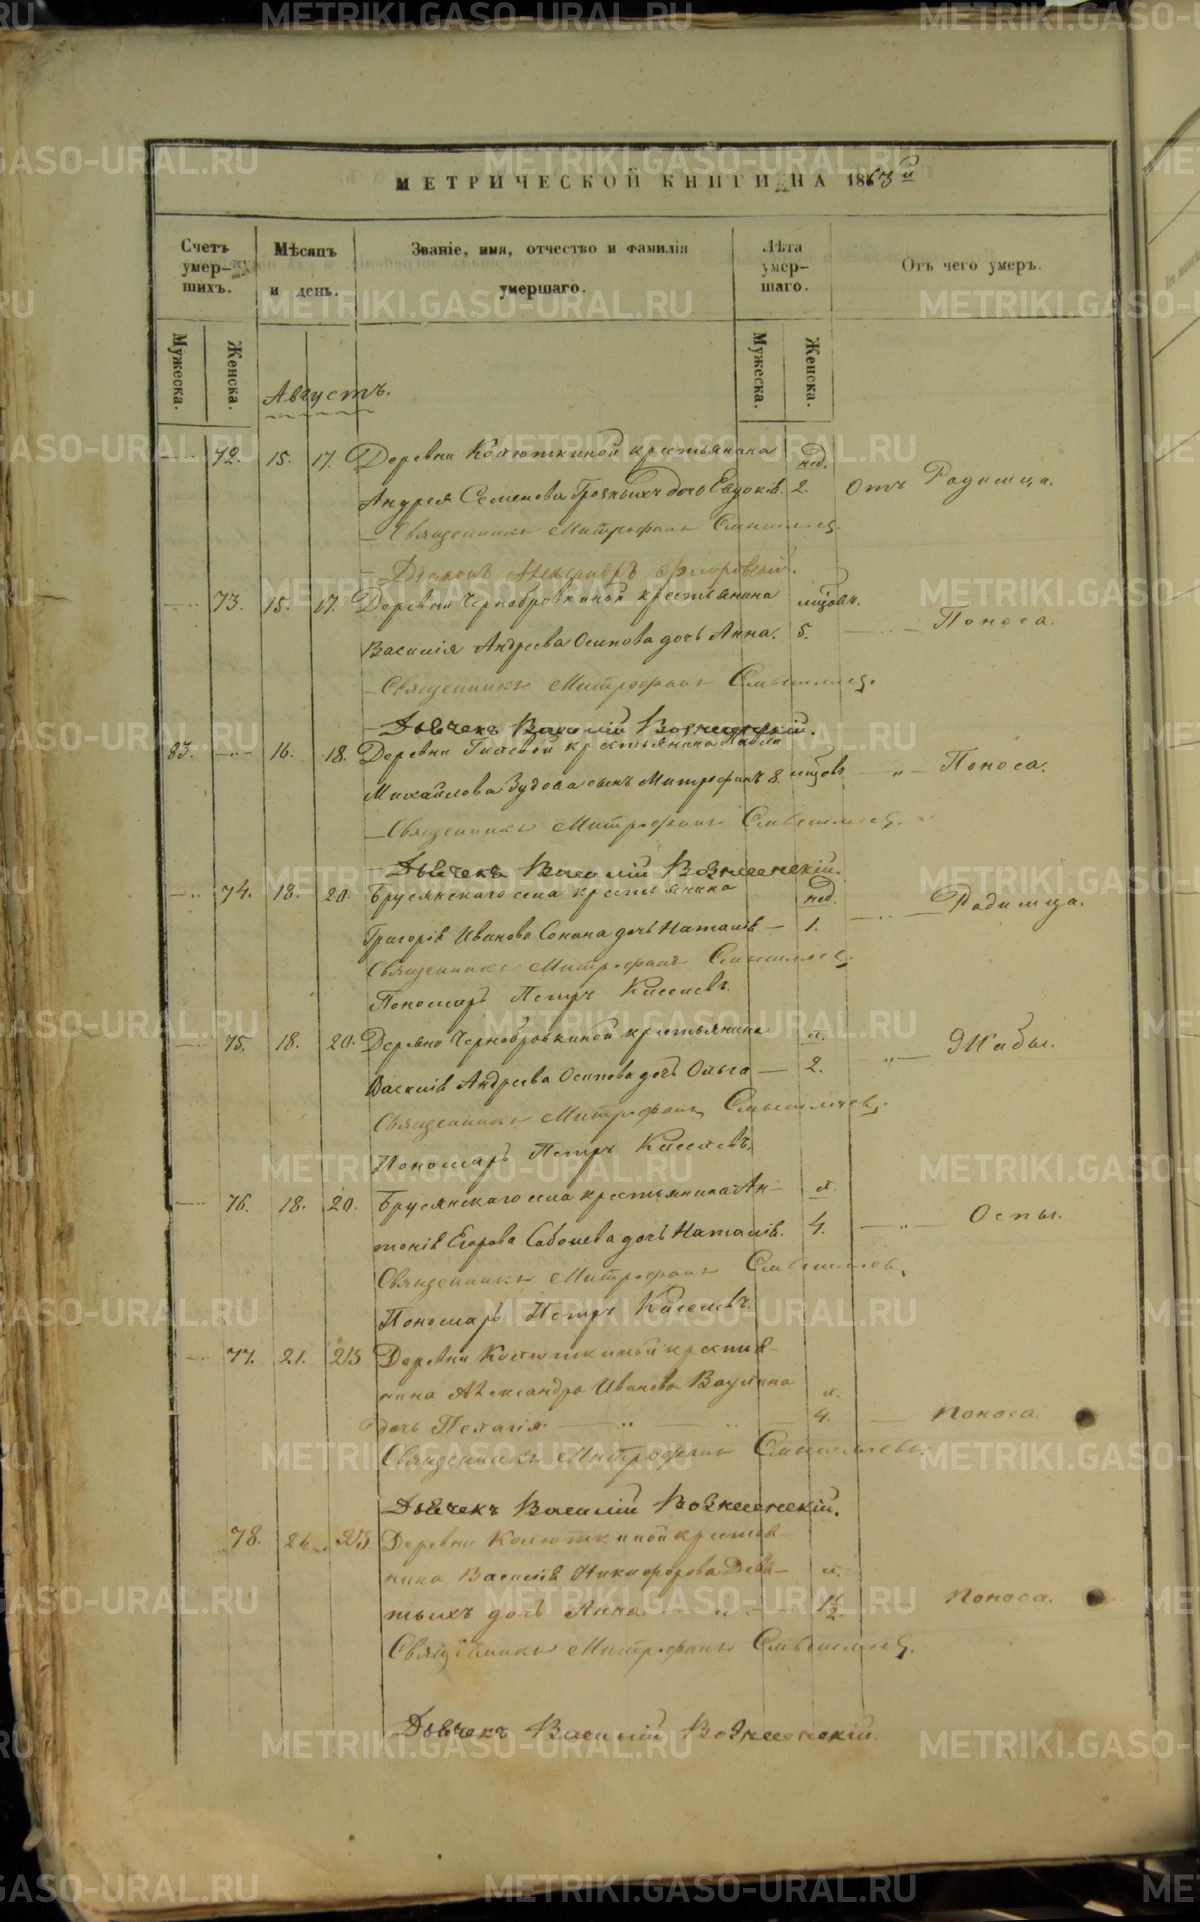 МЕТРИЧЕСКОЙ КНИГИ НА 1863й
Счетъ умер-шихъ.
Мѣсяцъ и день.
Званіе, имя, отчество и фамилія умершаго.
Лѣта умер-шаго.
Отъ чего умеръ.
Мужеска.
Женска.
Мужеска.
Женска.
Августъ.
72. 15. 17. Деревни Колюткиной крестьянина нед.
Андрея Семенова дочь Евдокія. 2. Отъ Родимца.
Священникъ Митрофанъ
Діаконъ Александръ Флоровскій.
73. 15. 17. Деревни Чернобровкиной крестьянина мѣсяцовъ.
Василія Андреева Осипова дочь Анна. 5. Поноса.
Священникъ Митрофанъ
Дьячекъ Василій Вознесенскій.
83. 16. 18. Деревни Гилевой крестьянина Павла
Михайлова Зудова сынъ Митрофанъ 8. Поноса.
Священникъ Митрофанъ
Дьячекъ Василій Вознесенскій.
74. 18. 20. Брусянскаго села крестьянина нед.
Григорія Иванова Сонина дочь Наталія 1. Родимца.
Священникъ Митрофанъ
Пономарь Петръ Киселевъ.
75. 18. 20. Деревни Чернобровкиной крестьянина л.
Василія Андреева Осипова дочь Ольга 2. Жабы.
Священникъ Митрофанъ
Пономарь Петръ Киселевъ.
76. 18. 20. Брусянскаго села крестьянина Ан- л.
тонія Егорова дочь Наталія. 4. Оспы.
Священникъ Митрофанъ
Пономарь Петръ Киселевъ.
77. 21. 23 Деревни Колюткиной крестья-
нина Александра Иванова Ваулина л.
дочь Пелагія 4. Поноса.
Священникъ Митрофанъ
Дьячекъ Василій Вознесенскій.
78. 23. Деревни Колюткиной крестья-
нина Василія Никифорова Девя- л.
тыхъ дочь Анна 1½ Поноса.
Священникъ Митрофанъ
Дьячекъ Василій Вознесенскій.
METRIKI.GASO-URAL.RU